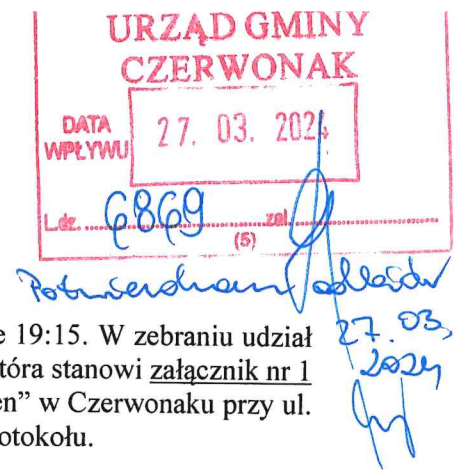 URZĄD GMINY
CZERWONAK
DATA
WPŁYWU
27. 03. 2024
L.dz. 6869 zał.
(5)
Potwierdzam
27.03.
2024
e 19:15. W zebraniu udział
tóra stanowi załącznik nr 1
en” w Czerwonaku przy ul.
otokołu.